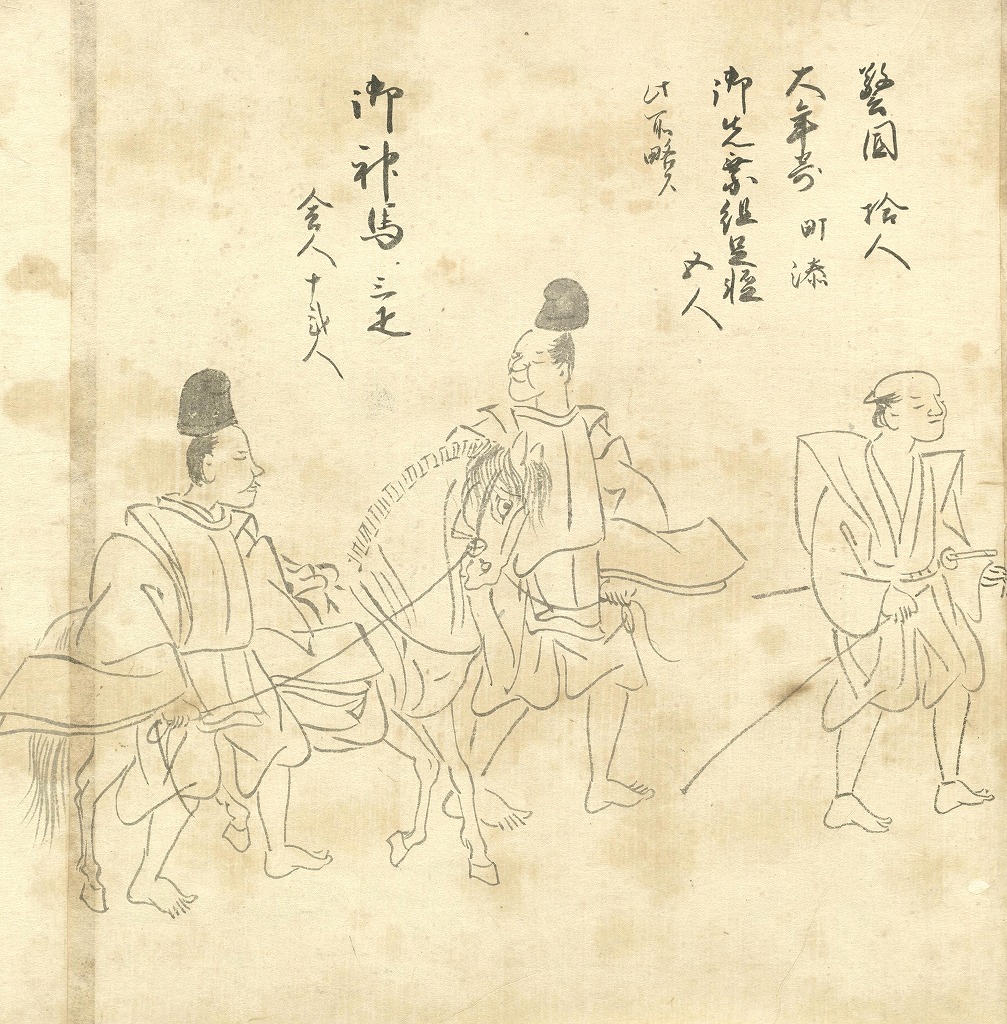 警固 拾人
大年寄 町添
御先乗組足軽
五人
此所略ス
御神馬 三疋
舎人十弐人